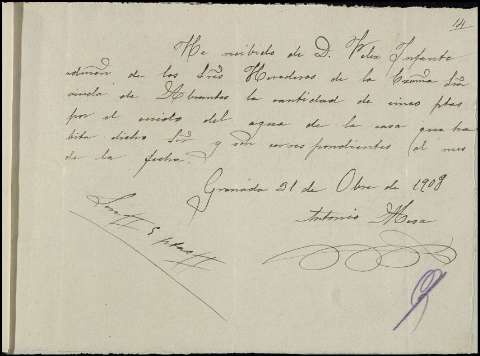 44
He recibido de D. Felix Infante
admon de los Sres Herederos de la Exma Sra
viuda de Abrantes la cantidad de cinco ptas
por el cuido del agua de la casa que ha
bita dicho Sr y son correspondientes al mes
de la fecha.
Granada 31 de Obre de 1908
Antonio Mesa
Son # 5 ptas #